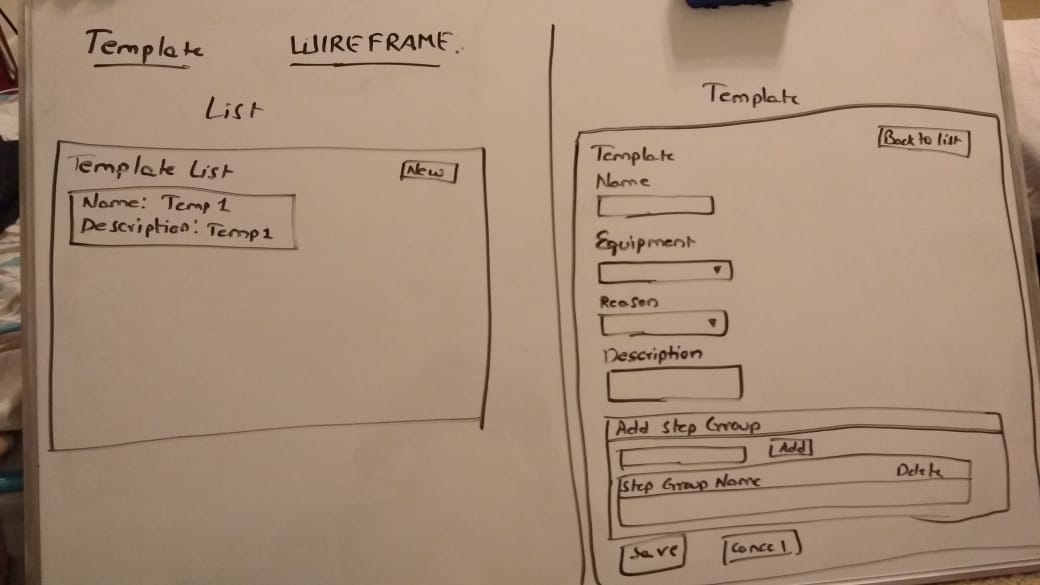 Template WIREFRAME.
List
Template List New
Name: Temp 1
Description: Temp1
Template
Back to list
Template
Name
Equipment
Reason
Description
Add Step Group
Add
Step Group Name Delete
Save Cancel